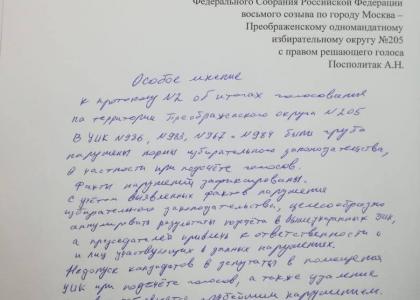 Федерального Собрания Российской Федерации
восьмого созыва по городу Москва –
Преображенскому одномандатному
избирательному округу №205
с правом решающего голоса
Посполитак А.Н.
Особое мнение
к протоколу №2 об итогах голосования
на территории Преображенского округа №205
В УИК №936, №983, №967 и №984 были грубо
нарушены нормы избирательного законодательства,
в частности при подсчёте голосов.
Факты нарушений зафиксированы.
С учётом выявленных фактов нарушения
избирательного законодательства, целесообразно
аннулировать результаты подсчёта в вышеуказанных УИК,
а председателей привлечь к ответственности
и лиц участвующих в данных нарушениях.
Недопуск кандидатов в депутаты в помещения
УИК при подсчёте голосов, а также удаление
нарушением.